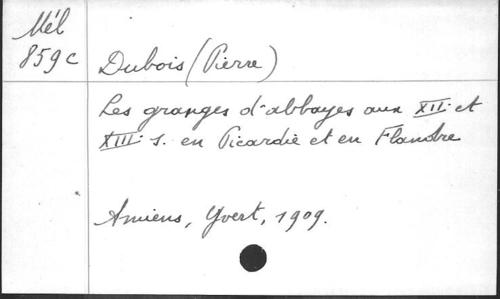 Mél
859c
Dubois (Pierre)
Les granges d'abbayes aux XII. et
XIII. s. en Picardie et en Flandre
Amiens, Yvert, 1909.